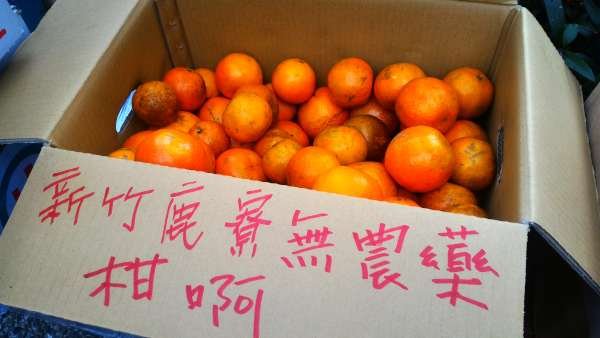 新竹鹿寮無農藥
柑啊